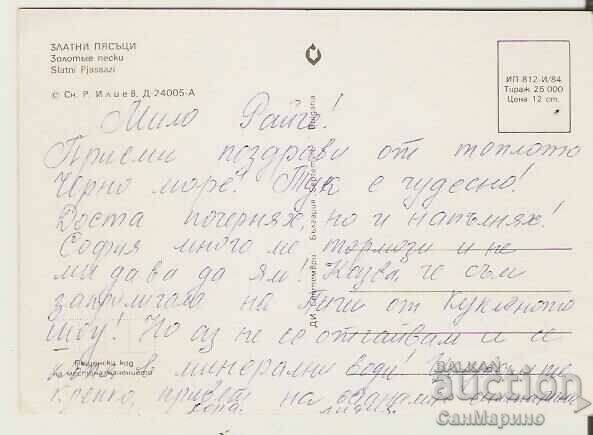 ЗЛАТНИ ПЯСЪЦИ
Золотые пески
Slatni Pjassazi
© Сн. Р. Илиев, Д-24005-А
ИП 812-И/84
Тираж 25 000
Цена 12 ст.
Мило Райче!
Приеми поздрави от топлото
Черно море! Тук е чудесно!
Доста почернях, но и напълнях!
София много ме тормози и не
ми дава да ям! Казва, че съм
заприличала на Пиги от Кукленото
шоу! Но аз не се отчайвам и се
в минерални води!
Крепко, привет на
ДИ Септември България
Пощенски код
на местоназначението
BALKAN
auction
СанМарино